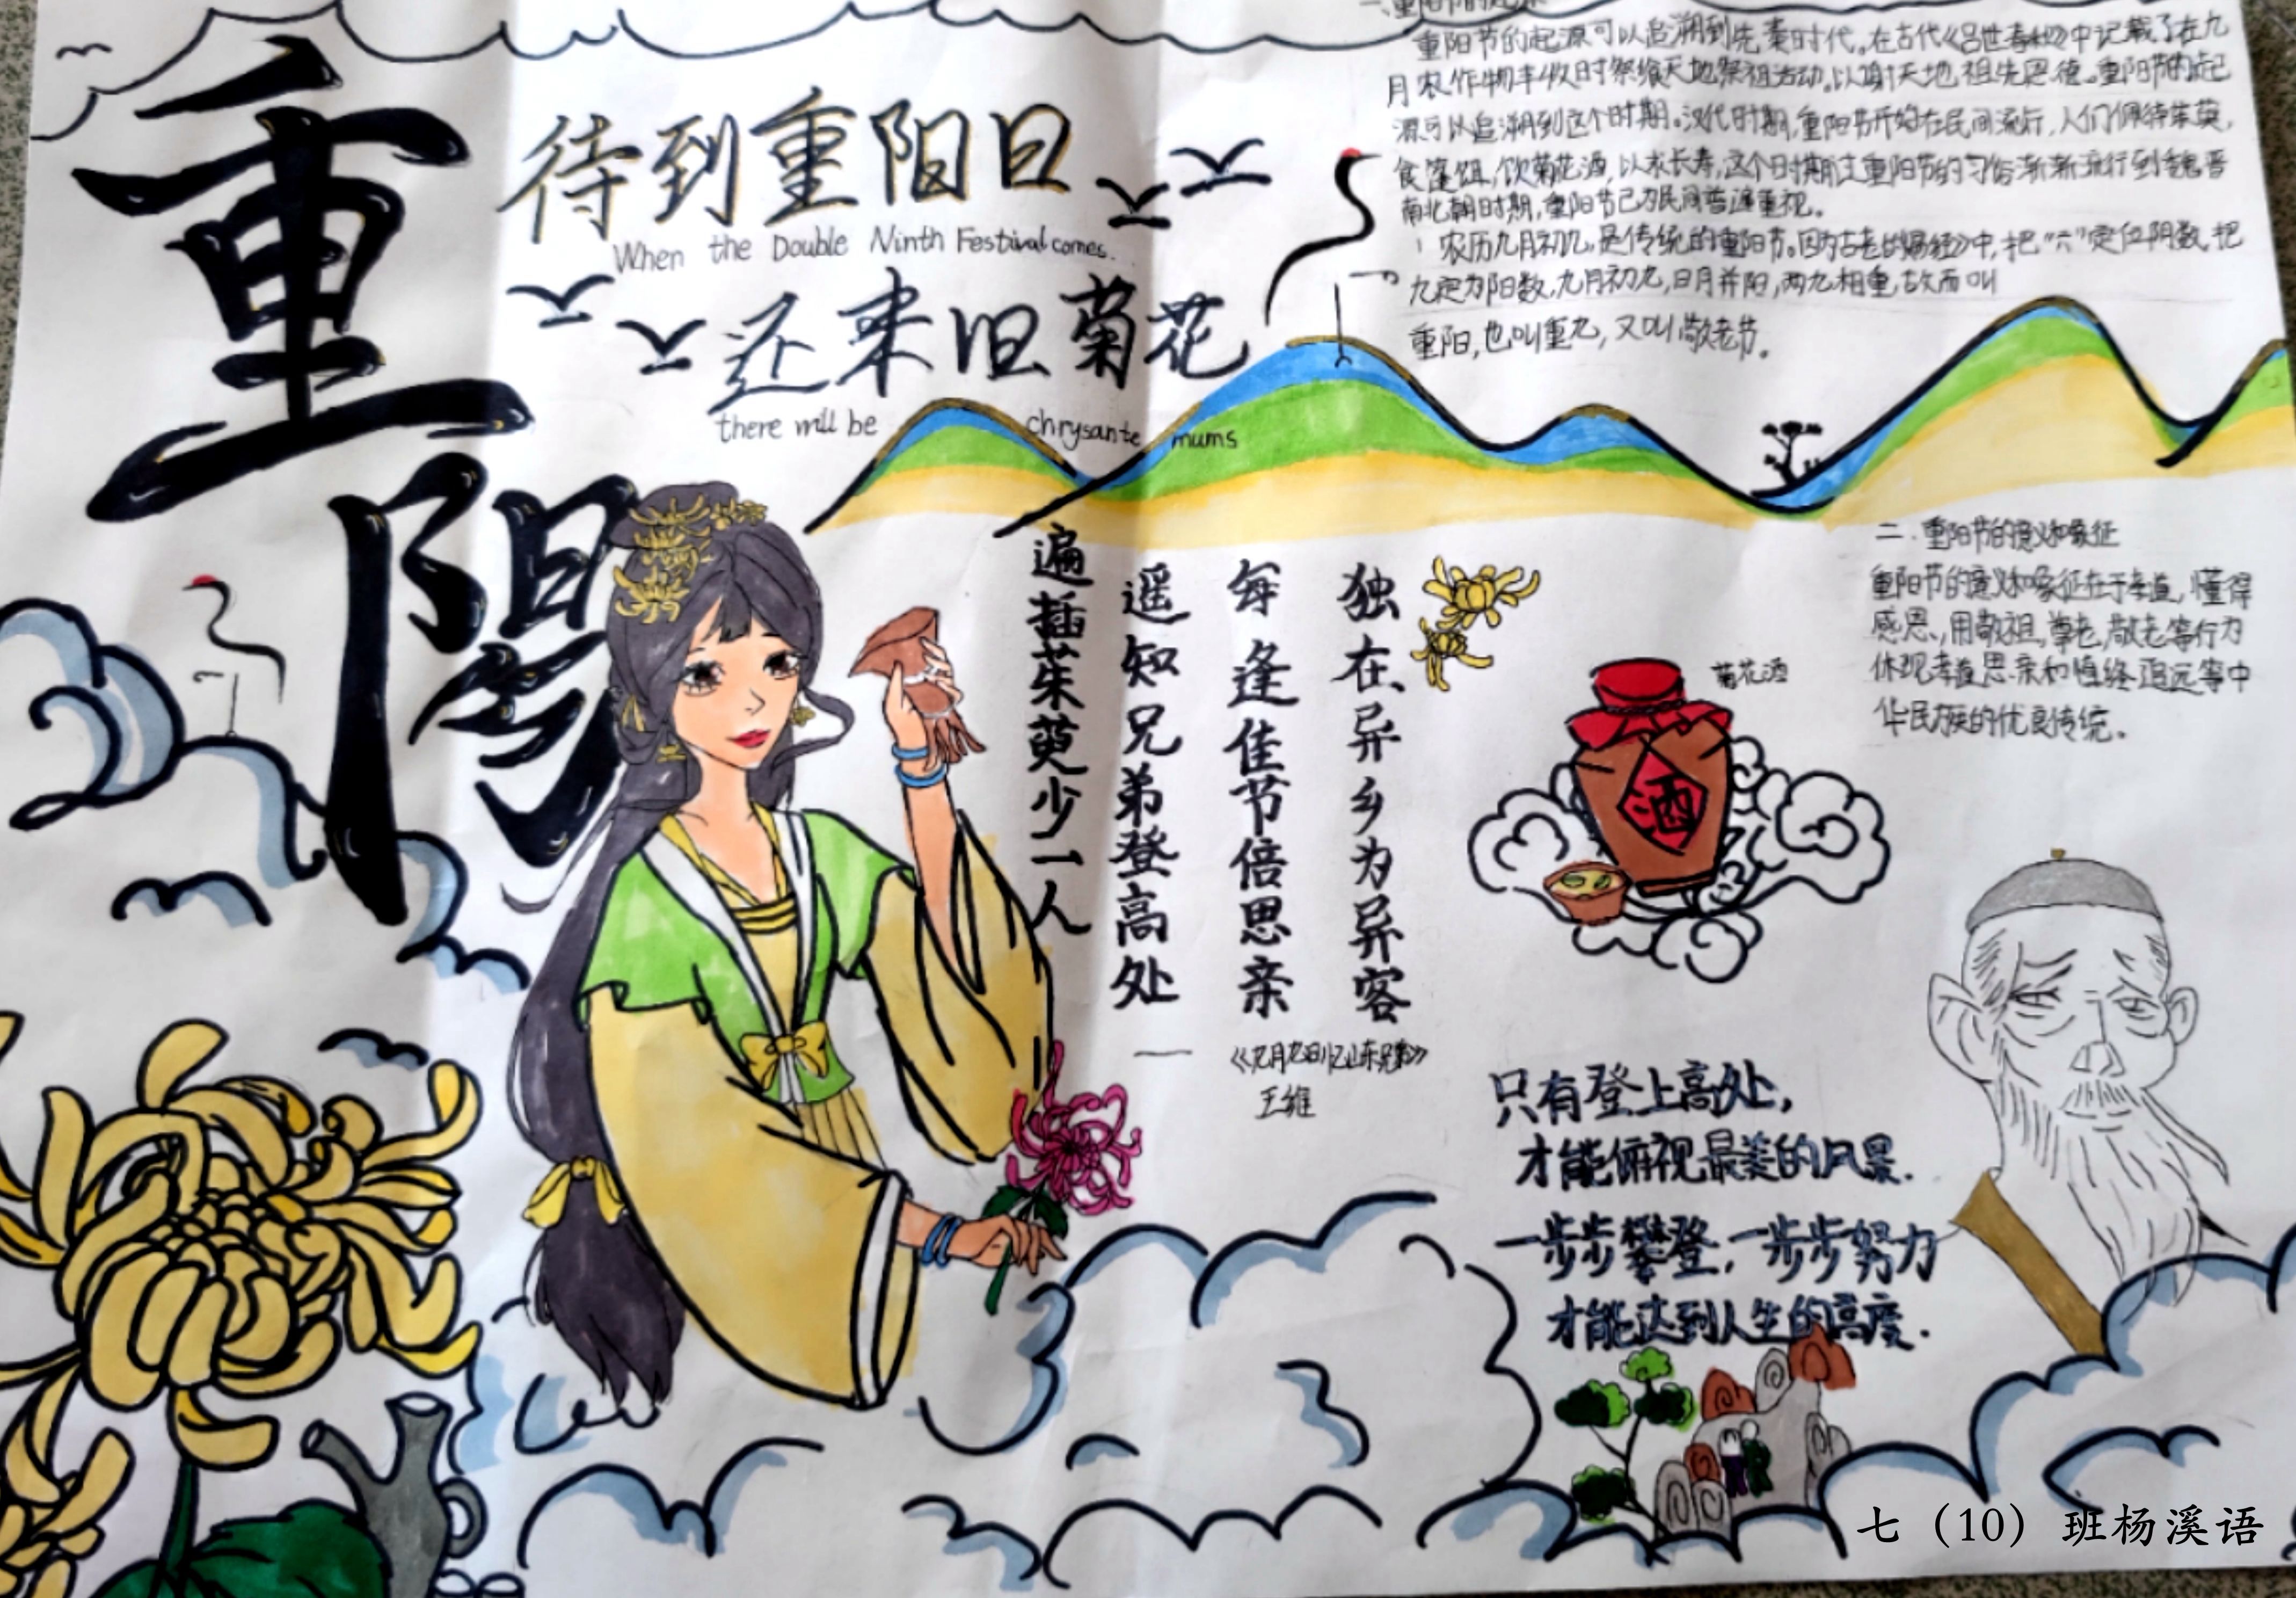 重阳
待到重阳日
When the Double Ninth Festival comes.
还来旧菊花
there will be chrysante mums
重阳节的起源可以追溯到先秦时代。在古代《吕世春秋》中记载了在九
月农作物丰收时祭飨天地祭祖活动。以谢天地、祖先恩德。重阳节的起
源可以追溯到这个时期。汉代时期,重阳节开始在民间流行,人们佩待茱萸,
食篷饵,饮菊花酒,以求长寿,这个时期重阳节的习俗渐渐流行到魏晋
南北朝时期,重阳节已为民间普遍重视。
农历九月初九,是传统的重阳节。因为古老的《易经》中,把“六”定位阴数,把
九定为阳数,九月初九,日月并阳,两九相重,故而叫
重阳,也叫重九,又叫敬老节。
独在异乡为异客
每逢佳节倍思亲
遥知兄弟登高处
遍插茱萸少一人
——《九月九日忆山东兄弟》
王维
菊花酒
酒
二.重阳节的意义和象征
重阳节的意义和象征在于孝道,懂得
感恩,用敬祖,尊老,敬老等行为
体现孝道思亲和慎终追远等中
华民族的优良传统。
只有登上高处,
才能俯视最美的风景.
一步步攀登,一步步努力
才能达到人生的高度.
七（10）班杨溪语